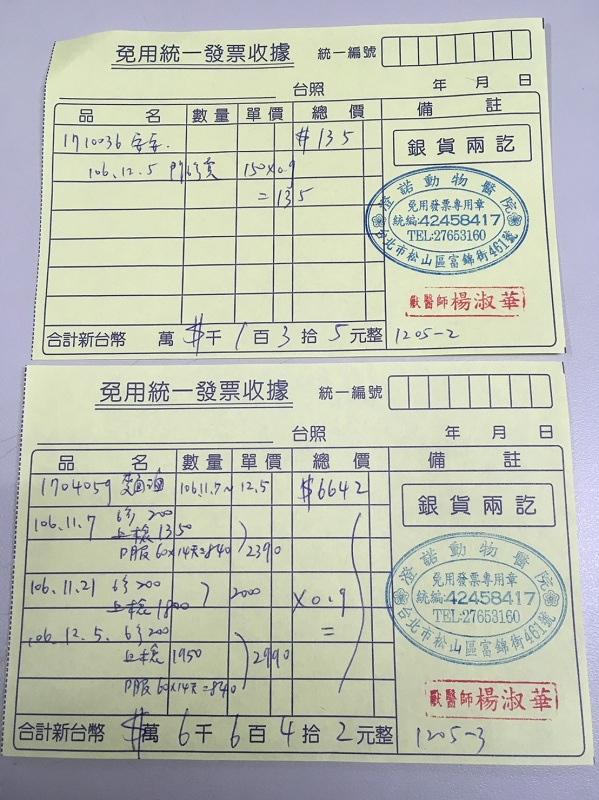 免用統一發票收據 統一編號
台照 年 月 日
品 名 數量 單價 總價 備註
1710036 $135
106.12.5 150×0.9
=135
銀貨兩訖
澄諾動物醫院
免用發票專用章
統編:42458417
TEL:27653160
台北市松山區富錦街461號
獸醫師 楊淑華
合計新台幣 萬 $千 1百 3拾 5元整 1205-2
免用統一發票收據 統一編號
台照 年 月 日
品 名 數量 單價 總價 備註
1704059 106.11.7~12.5 $6642
106.11.7 200
1350
P服 60×14天=840 2390
106.11.21 200 2000 ×0.9
1800 =
106.12.5. 200
1950 2990
P服 60×14天=840
銀貨兩訖
澄諾動物醫院
免用發票專用章
統編:42458417
TEL:27653160
台北市松山區富錦街461號
獸醫師 楊淑華
合計新台幣 $萬 6千 6百 4拾 2元整 1205-3